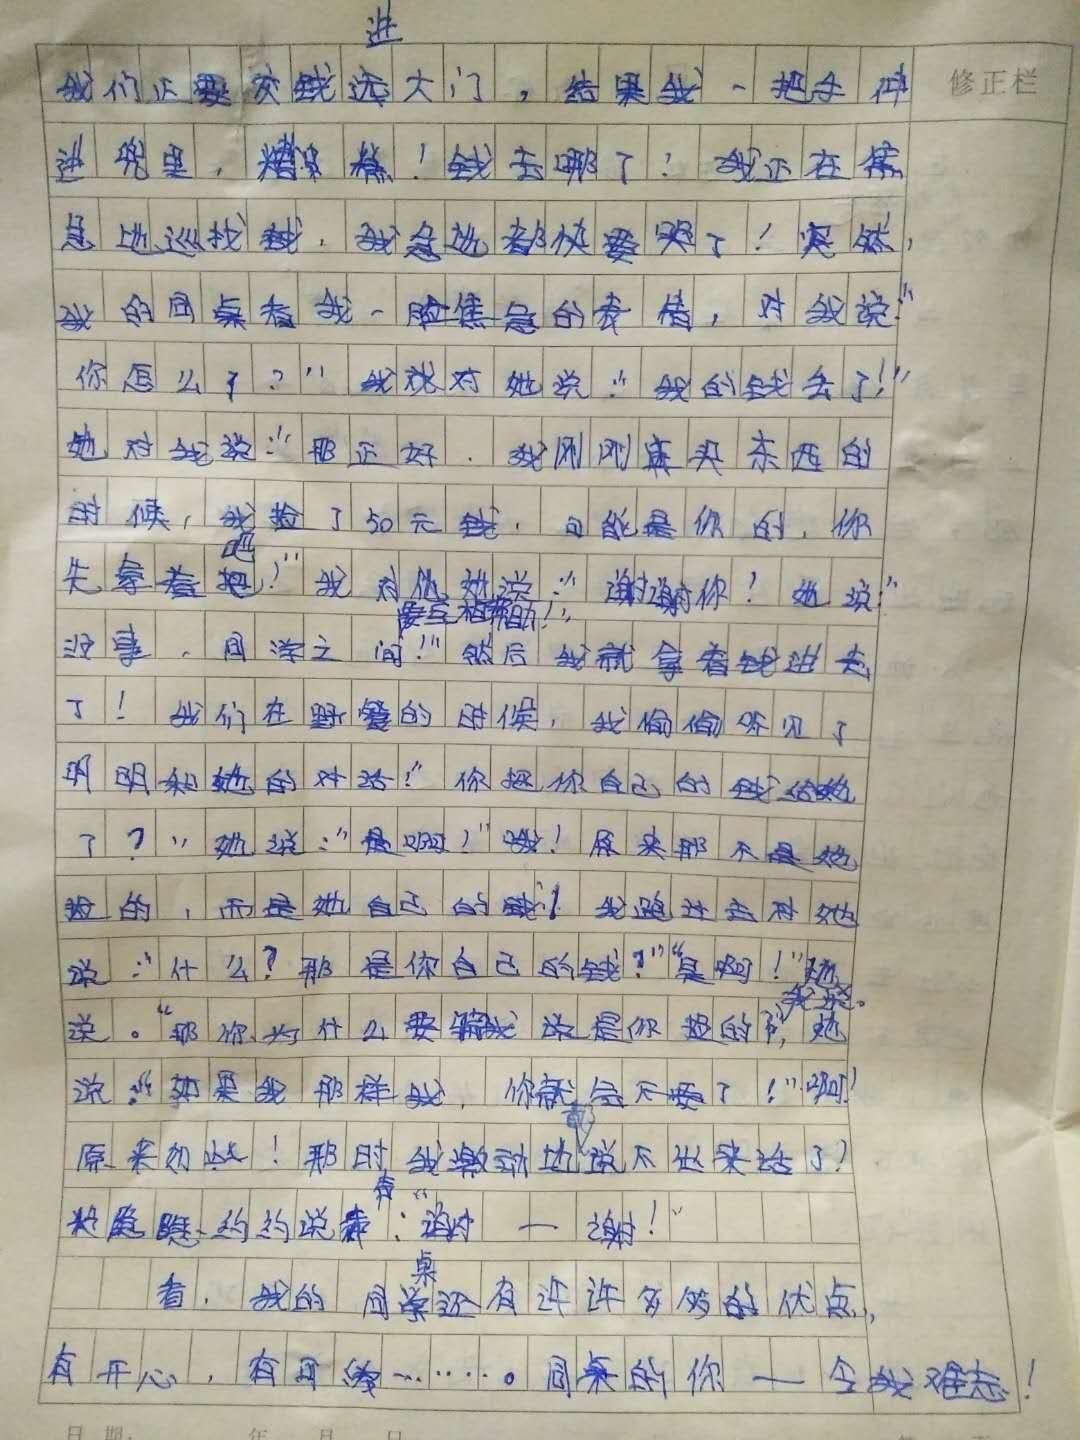 进
我们正要交钱选大门，结果我一把手伸
修正栏
进兜里，糟糕！钱去哪了！我正在焦
急地巡找钱，我急地都快要哭了！突然，
我的同桌看我一脸焦急的表情，对我说：“
你怎么了？”我就对她说：“我的钱去了！”
她对我说：“那正好，我刚刚买东西的
时候，我捡了50元钱，可能是你的，你
吧
先拿着把！”我对她说：“谢谢你！她说：“
要互相帮助！”
没事，同学之间！”然后我就拿着钱进去
了！我们在野餐的时候，我偷偷听见了
明明和她的对话！“你把你自己的钱给她
了？”她说：“是啊！”哦！原来那不是她
捡的，而是她自己的钱！我跑过去对她
说：“什么？那是你自己的钱？”“是啊！”她
我说。
说。“那你为什么要骗我说是你捡的？”她
说：“如果我那样我，你就会不要了！”啊！
都
原来如此！那时，我激动地说不出来话了！
有
隐隐约约说着：“谢一谢！”
桌
看，我的同学还有许许多多的优点，
有开心，有可
……。同桌的你一令我难忘！
日期： 年 月 日